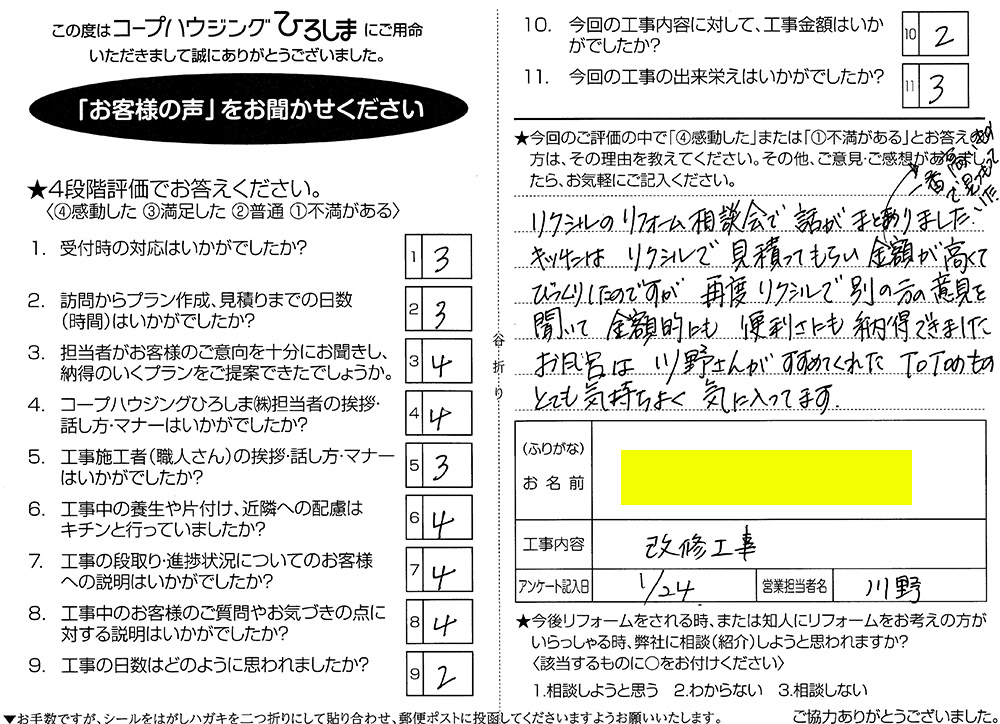 この度はコープハウジングひろしまにご用命
いただきまして誠にありがとうございました。
「お客様の声」をお聞かせください
★4段階評価でお答えください。
〈④感動した ③満足した ②普通 ①不満がある〉
1. 受付時の対応はいかがでしたか?
1 3
2. 訪問からプラン作成、見積りまでの日数
(時間)はいかがでしたか?
2 3
3. 担当者がお客様のご意向を十分にお聞きし、
納得のいくプランをご提案できたでしょうか。
3 4
4. コープハウジングひろしま㈱担当者の挨拶・
話し方・マナーはいかがでしたか?
4 4
5. 工事施工者(職人さん)の挨拶・話し方・マナー
はいかがでしたか?
5 3
6. 工事中の養生や片付け、近隣への配慮は
キチンと行っていましたか?
6 4
7. 工事の段取り・進捗状況についてのお客様
への説明はいかがでしたか?
7 4
8. 工事中のお客様のご質問やお気づきの点に
対する説明はいかがでしたか?
8 4
9. 工事の日数はどのように思われましたか?
9 2
▼お手数ですが、シールをはがしハガキを二つ折りにして貼り合わせ、郵便ポストに投函してくださいますようお願いいたします。
谷折り
10. 今回の工事内容に対して、工事金額はいか
がでしたか?
10 2
11. 今回の工事の出来栄えはいかがでしたか?
11 3
★今回のご評価の中で「④感動した」または「①不満がある」とお答えの
方は、その理由を教えてください。その他、ご意見・ご感想がありまし
たら、お気軽にご記入ください。
リクシルのリフォーム相談会で話がまとまりました。
キッチンは リクシルで見積ってもらい金額が高くて
びっくりしたのですが 再度リクシルで別の方の意見を
聞いて 金額的にも 便利さにも 納得できました
お風呂は 川野さんがすすめてくれた TOTOのもの
とても気持ちよく 気に入ってます。
一番高い
(ふりがな)
お名前
工事内容 改修工事
アンケート記入日 1/24 営業担当者名 川野
★今後リフォームをされる時、または知人にリフォームをお考えの方が
いらっしゃる時、弊社に相談(紹介)しようと思われますか?
〈該当するものに○をお付けください〉
1.相談しようと思う 2.わからない 3.相談しない
ご協力ありがとうございました。